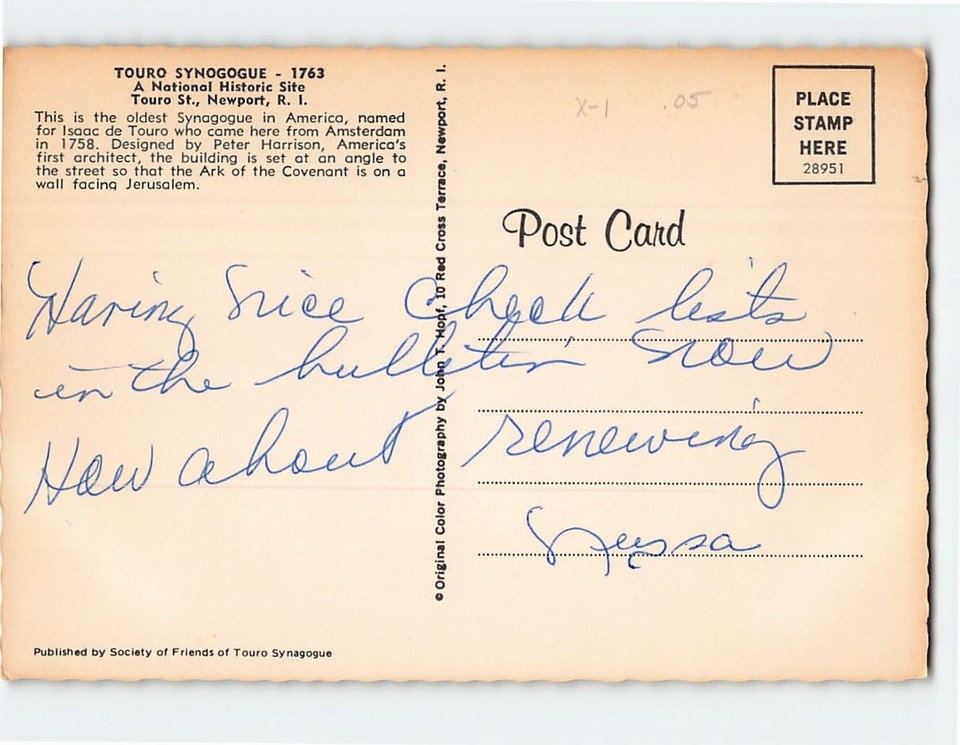 TOURO SYNOGOGUE - 1763
A National Historic Site
Touro St., Newport, R. I.
This is the oldest Synagogue in America, named
for Isaac de Touro who came here from Amsterdam
in 1758. Designed by Peter Harrison, America's
first architect, the building is set at an angle to
the street so that the Ark of the Covenant is on a
wall facing Jerusalem.
© Original Color Photography by John T. Hopf, 10 Red Cross Terrace, Newport, R. I.
X-1 .05
PLACE
STAMP
HERE
28951
Post Card
Having nice check lists
in the bulletin now
How about renewing
Published by Society of Friends of Touro Synagogue